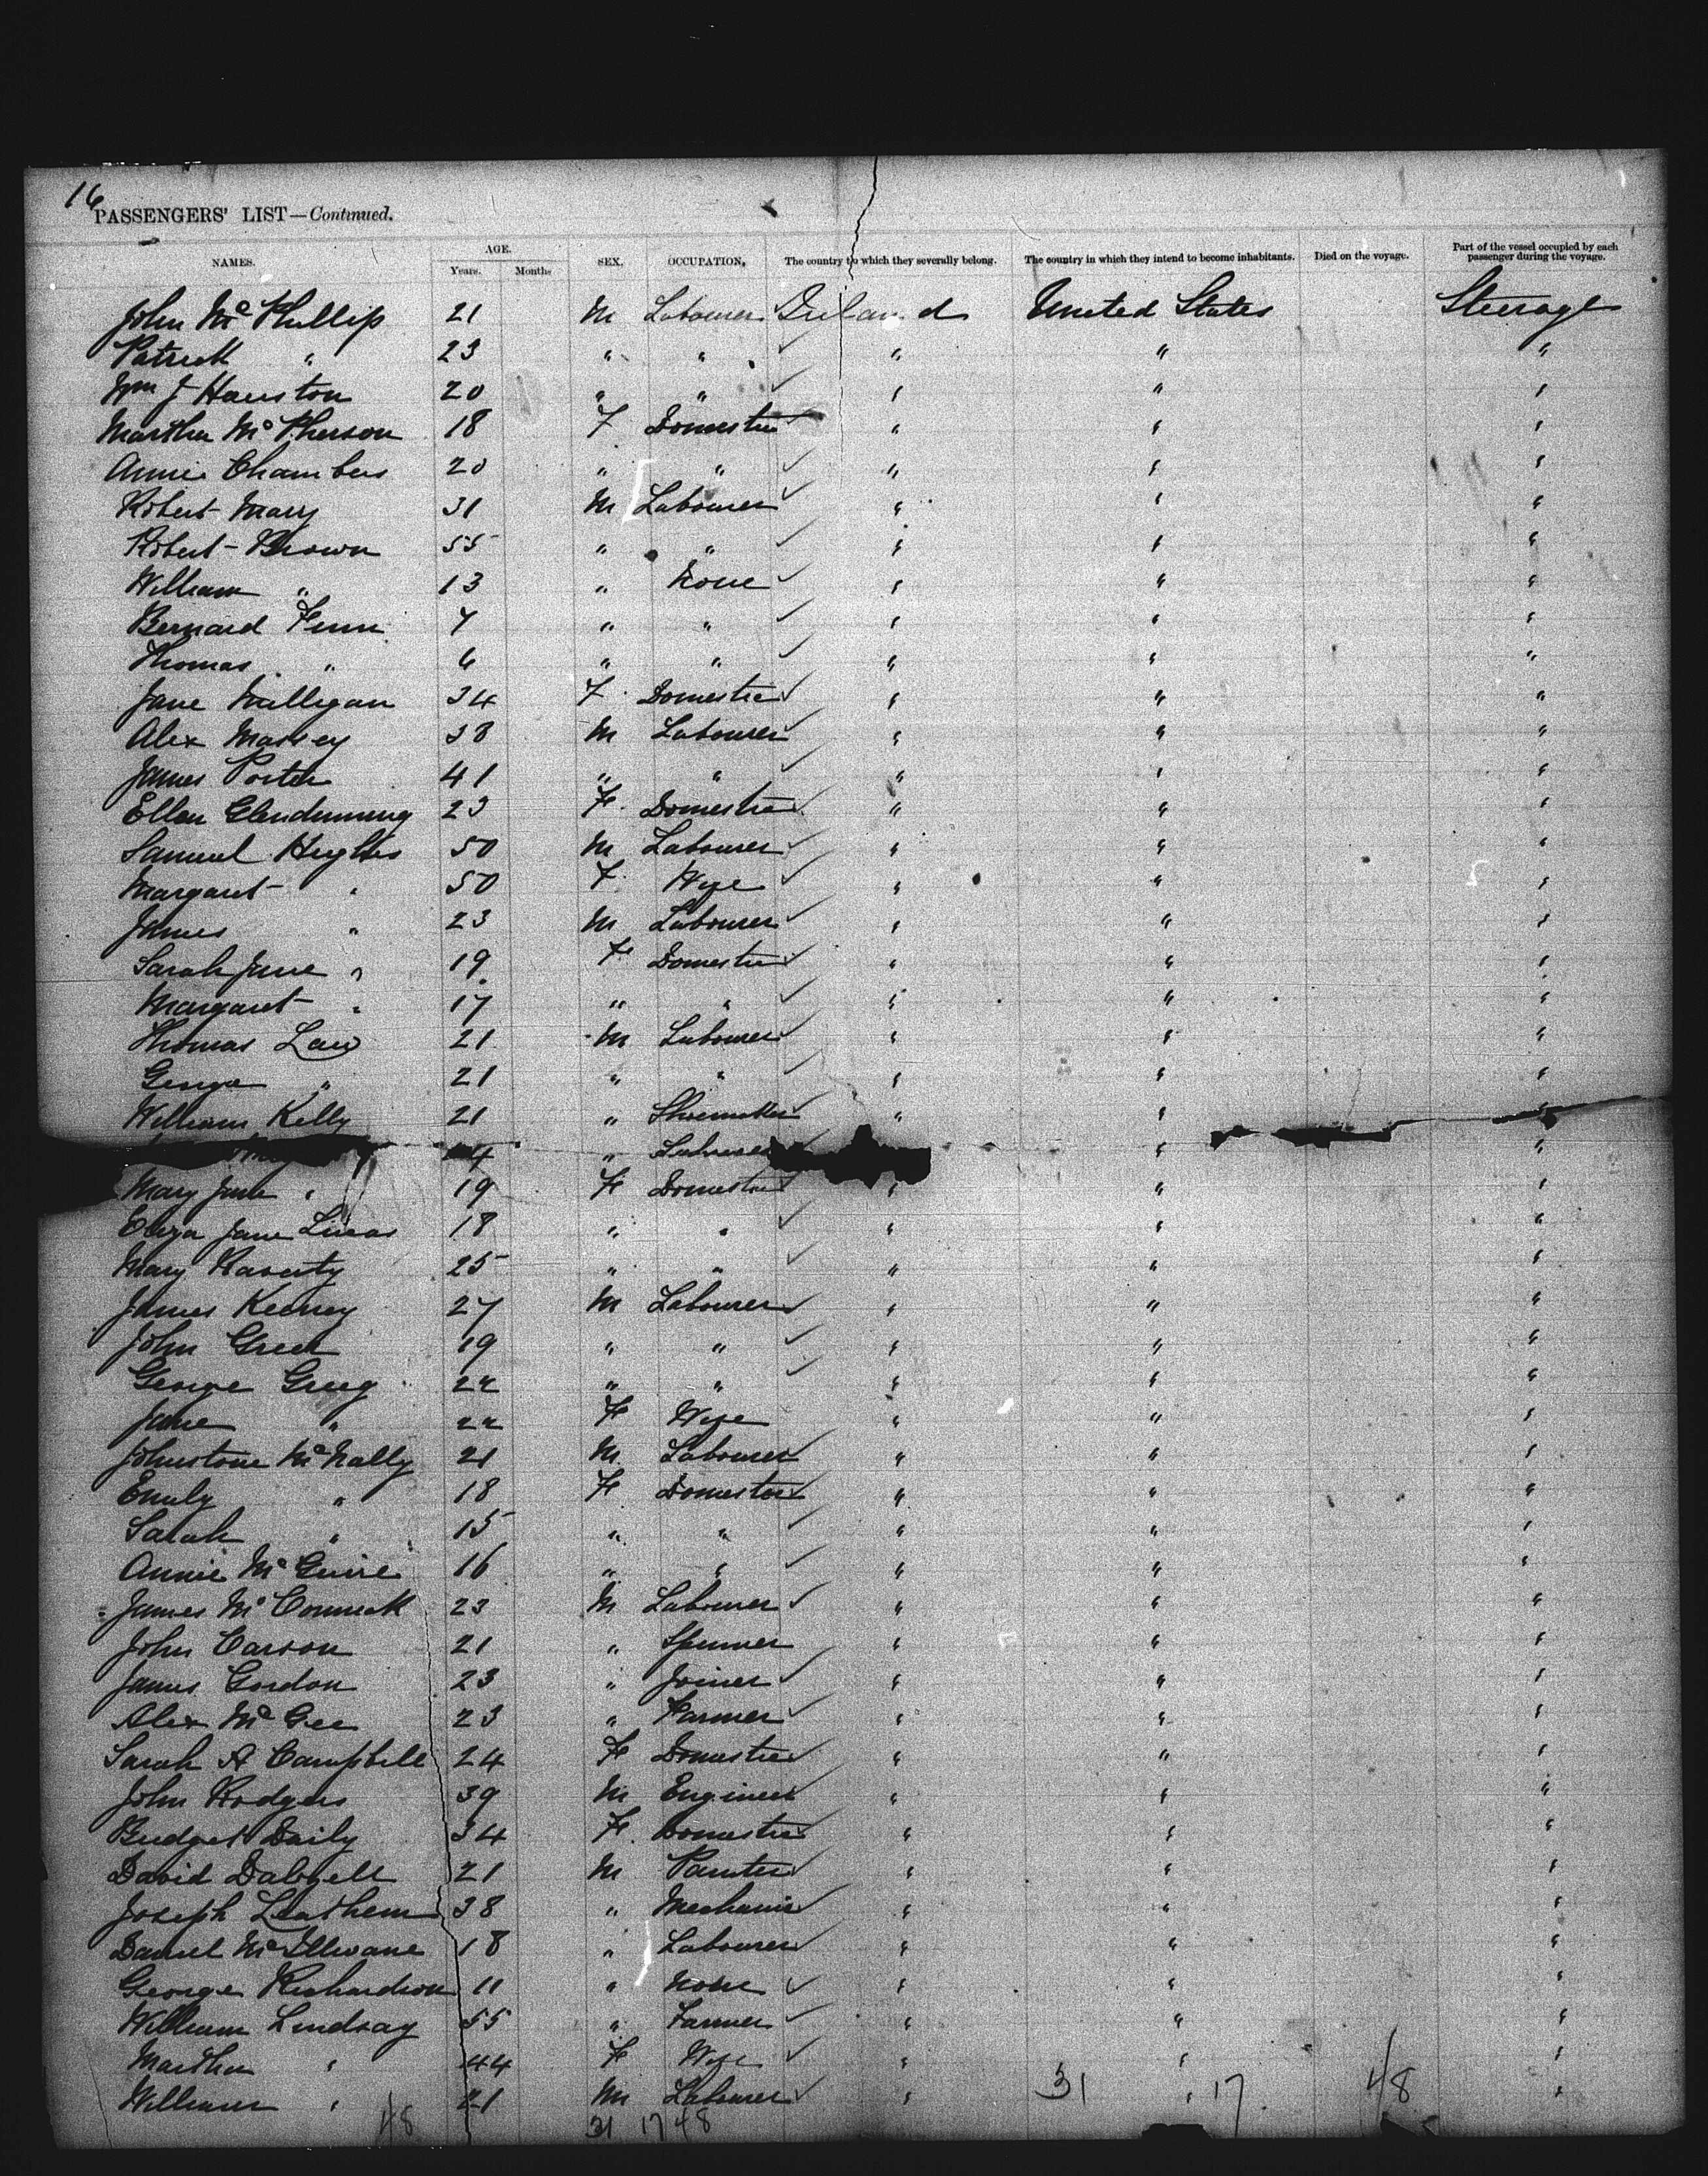 16
PASSENGERS' LIST—Continued.
NAMES. AGE. Years. Months SEX. OCCUPATION, The country to which they severally belong. The country in which they intend to become inhabitants. Died on the voyage. Part of the vessel occupied by each passenger during the voyage.
John Mc Phillip 21 M Labourer Ireland United States Steerage
Patrick " 23 " " " " "
Wm J Hauston 20 " " " " "
Martha McPherson 18 F Domestic " " "
Annie Chambers 20 " " " " "
Robert Mary 31 M Labourer " " "
Robert Brown 55 " " " " "
William " 13 " None " " "
Bernard Fenn 7 " " " " "
Thomas " 6 " " " " "
Jane Mulligan 34 F Domestic " " "
Alex Massey 38 M Labourer " " "
James Porter 41 " " " " "
Ellen Glendinning 23 F Domestic " " "
Samuel Hughes 50 M Labourer " " "
Margaret " 50 F Wife " " "
James " 23 M Labourer " " "
Sarah Jane " 19 F Domestic " " "
Margaret " 17 " " " " "
Thomas Law 21 M Labourer " " "
George " 21 " " " " "
William Kelly 21 " Shoemaker " " "
" Labourer " "
Mary Jane " 19 F Domestic " " "
Eliza Jane Lucas 18 " " " " "
Mary Haverty 25 " " " " "
James Kearney 27 M Labourer " " "
John Greer 19 " " " " "
George Greeg 22 " " " " "
Jane " 22 F Wife " " "
Johnstone McNally 21 M Labourer " " "
Emily " 18 F Domestic " " "
Sarah " 15 " " " " "
Annie McGuire 16 " " " " "
James McCormick 23 M Labourer " " "
John Carson 21 " Spinner " " "
James Gordon 23 " Joiner " " "
Alex McGee 23 " Farmer " " "
Sarah A Campbell 24 F Domestic " " "
John Rodgers 39 M Engineer " " "
Bridget Daily 34 F Domestic " " "
David Dalzell 21 M Painter " " "
Joseph Leathem 38 " Mechanic " " "
Daniel McIlwane 18 " Labourer " " "
George Richardson 11 " None " " "
William Lindsay 55 " Farmer " " "
Martha " 44 F Wife " " "
William " 21 M Labourer " " "
31 17 48
48 31 17 48